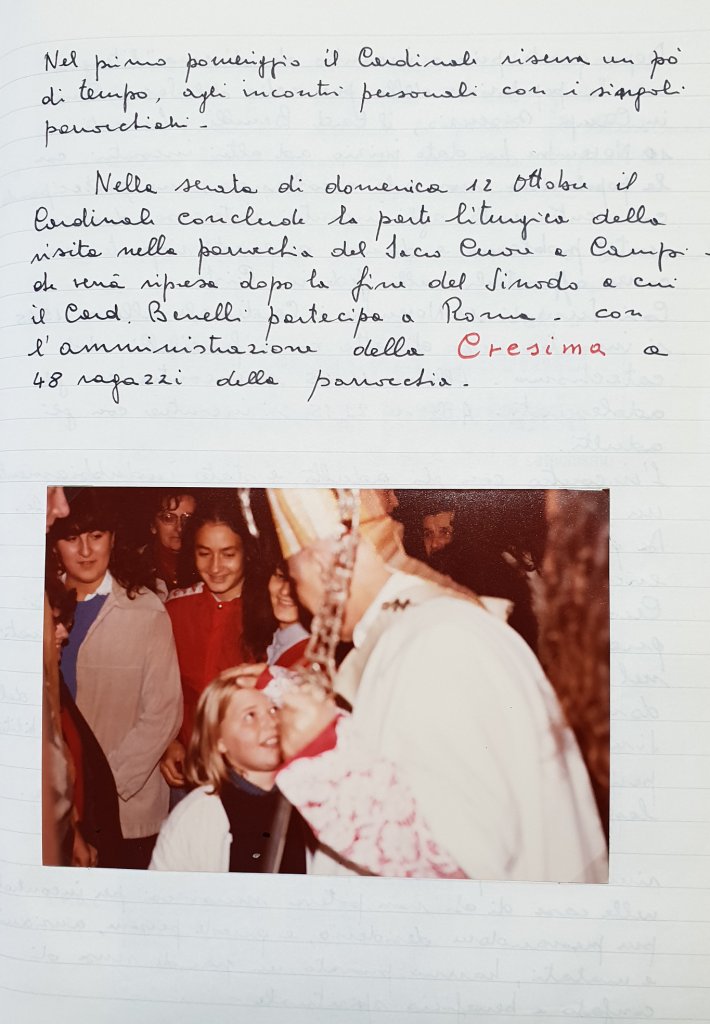 Nel primo pomeriggio il Cardinale riserva un pò
di tempo, agli incontri personali con i singoli
parrocchiani -
Nella serata di domenica 12 Ottobre il
Cardinale conclude la parte liturgica della
visita nella parrocchia del Sacro Cuore a Campi -
che verrà ripresa dopo la fine del Sinodo a cui
il Card. Benelli partecipa a Roma - con
l'amministrazione della Cresima a
48 ragazzi della parrocchia -